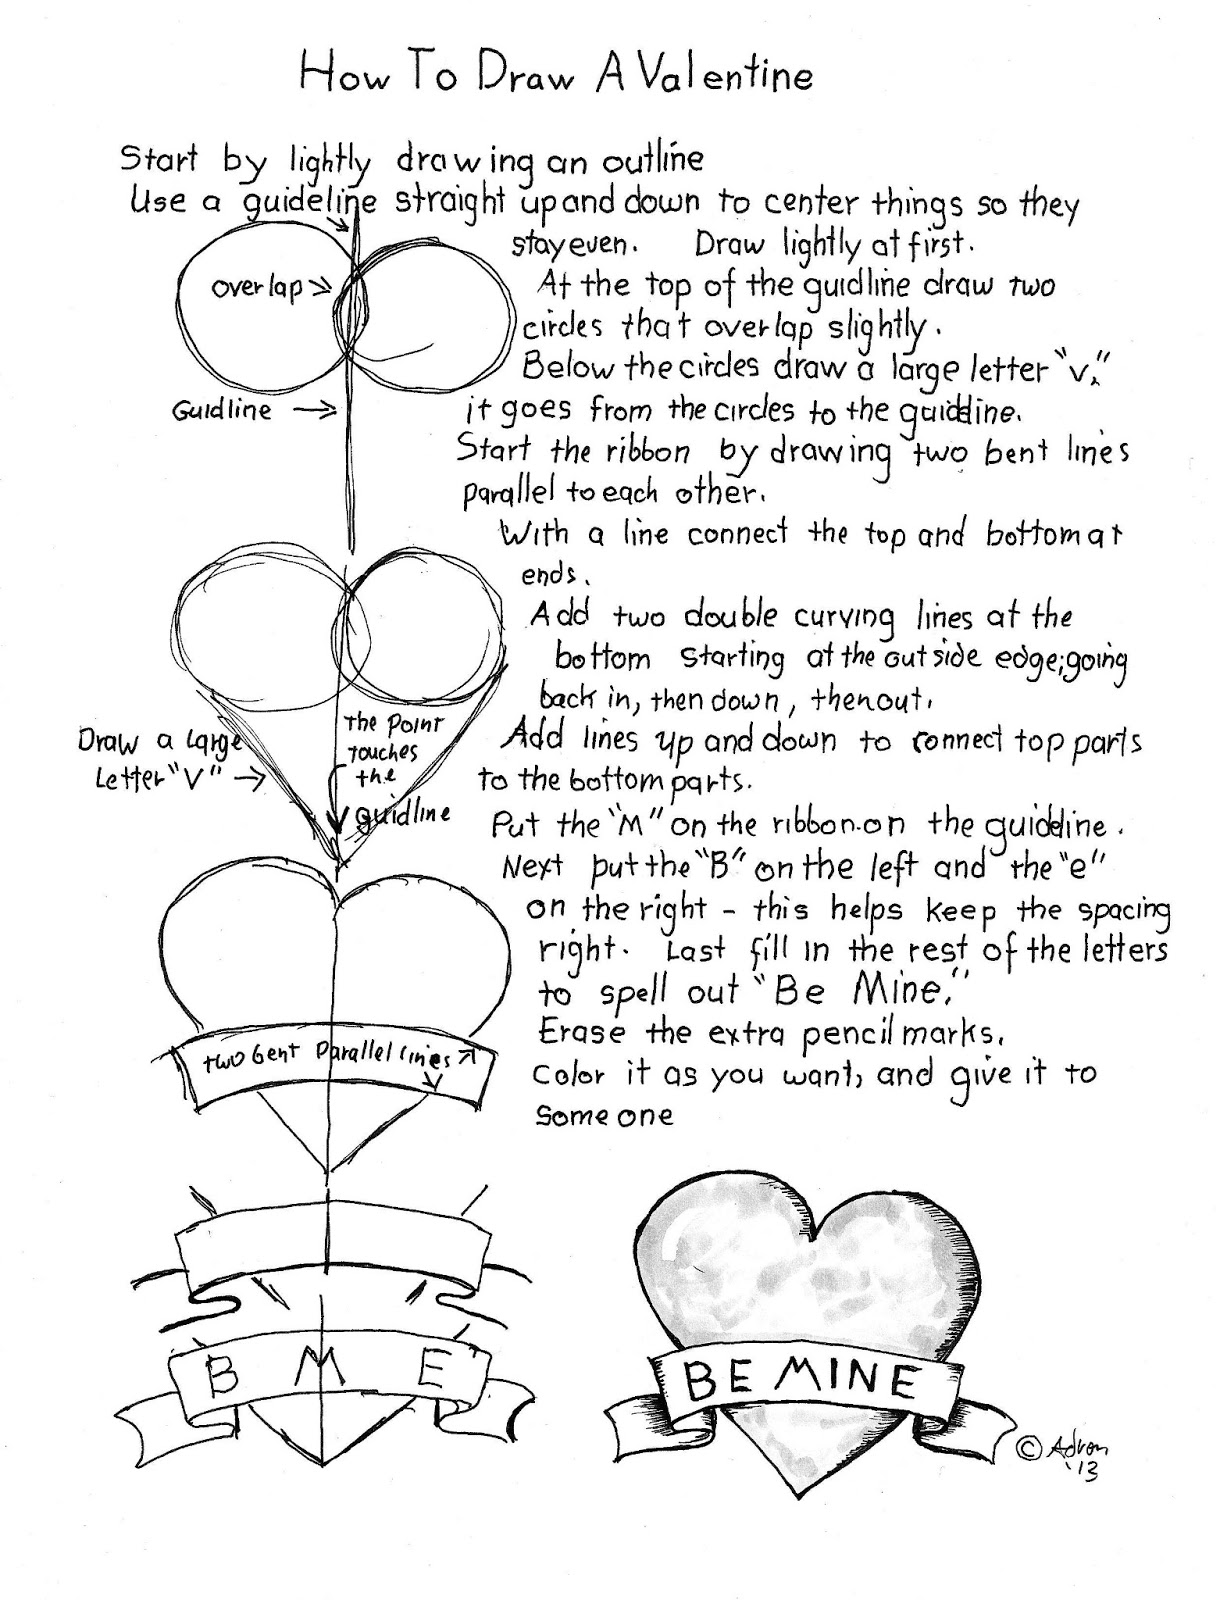 How To Draw A Valentine
Start by lightly drawing an outline
Use a guideline straight up and down to center things so they
stay even. Draw lightly at first.
At the top of the guidline draw two
circles that overlap slightly.
Below the circles draw a large letter "V,"
it goes from the circles to the guideline.
Start the ribbon by drawing two bent lines
parallel to each other.
With a line connect the top and bottom at
ends.
Add two double curving lines at the
bottom starting at the outside edge; going
back in, then down, then out.
Add lines up and down to connect top parts
to the bottom parts.
Put the "M" on the ribbon on the guideline.
Next put the "B" on the left and the "e"
on the right - this helps keep the spacing
right. Last fill in the rest of the letters
to spell out "Be Mine."
Erase the extra pencil marks.
Color it as you want, and give it to
someone
overlap
Guidline
Draw a large
Letter "V"
The Point
Touches
the
guidline
two bent Parallel lines
B M E
BE MINE
© Adron
'13